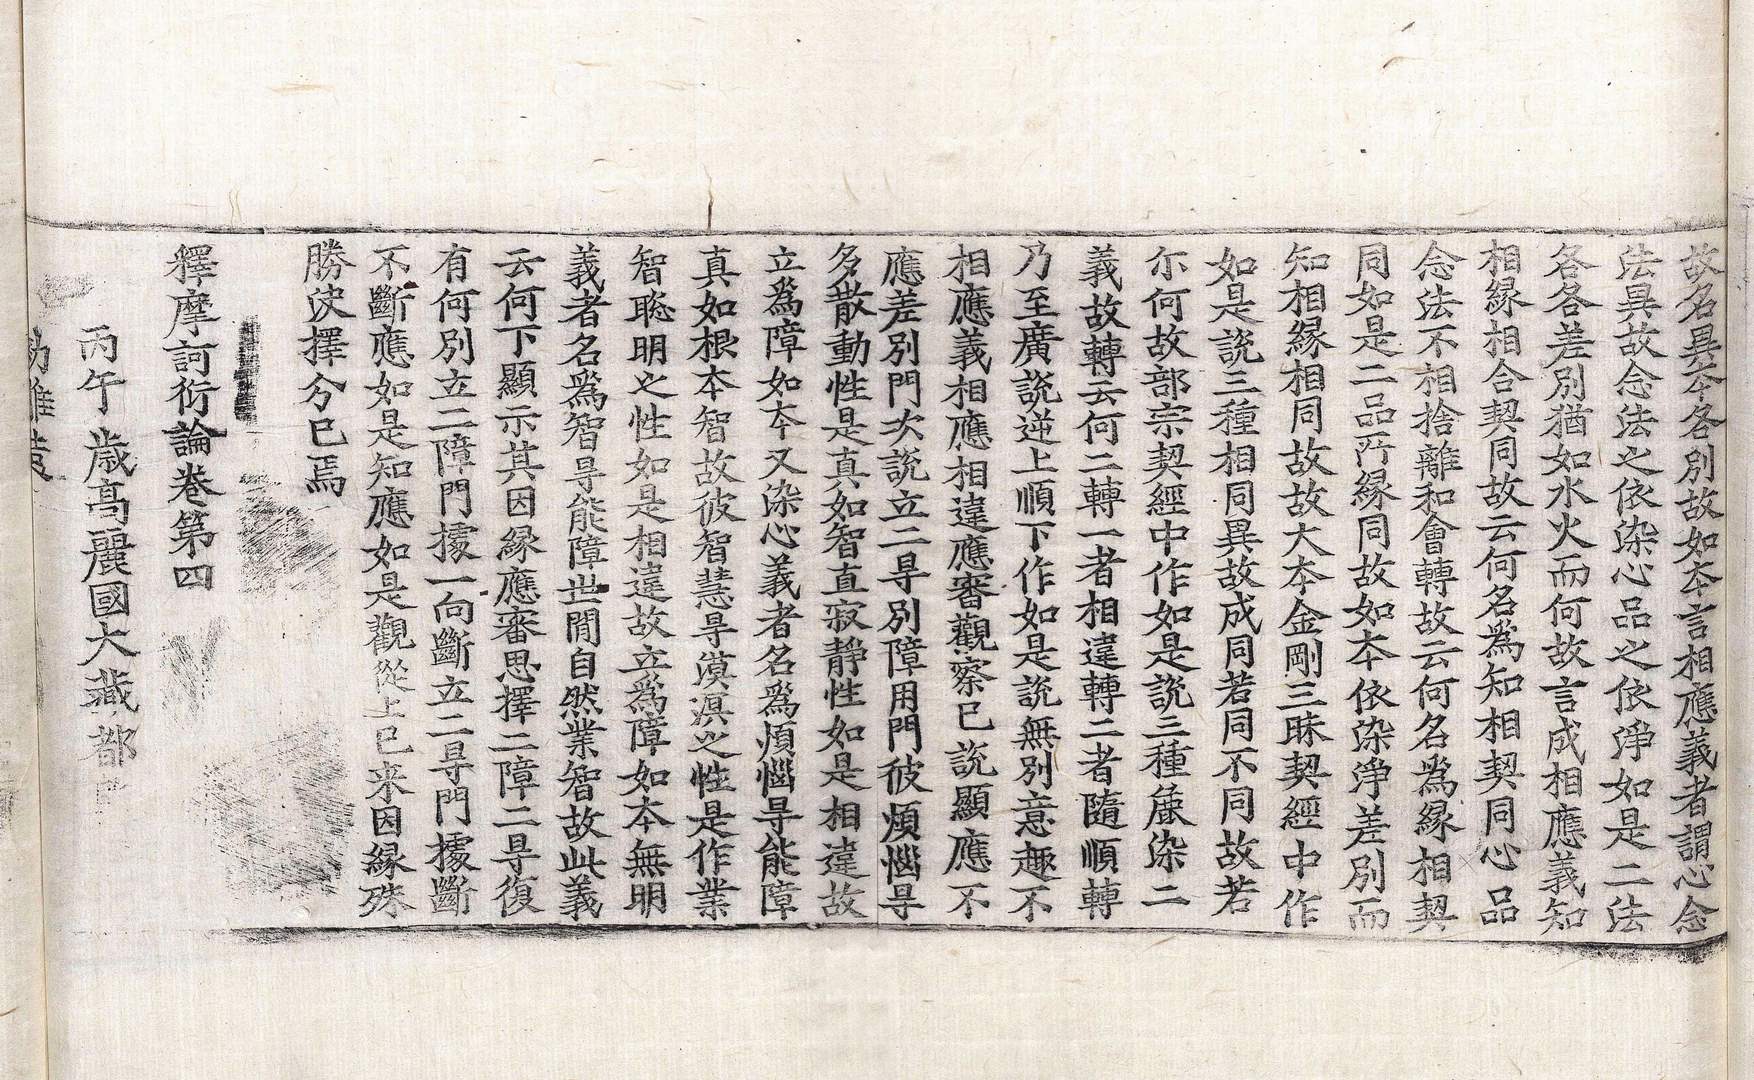 故名具本各別故如本言相應義者謂心念
法具故念法之依染心品之依淨如是二法
各各差別猶如水火而何故言成相應義知
相緣相合契同故云何名爲知相契同心品
念法不相捨離和會轉故云何名爲緣相契
同如是二品所緣同故如本依染淨差別而
知相緣相同故故大本金剛三昧契經中作
如是說三種相同異故成同若同不同故若
尒何故部宗契經中作如是說三種麁染二
義故轉云何二轉一者相違轉二者隨順轉
乃至廣說逆上順下作如是說無別意趣不
相應義相應相違應審觀察已說顯應不
應差別門次說立二㝵別障用門彼煩惱㝵
多散動性是真如智直寂靜性如是相違故
立爲障如本又染心義者名爲煩惱㝵能障
真如根本智故彼智慧㝵漠溟之性是作業
智聡明之性如是相違故立爲障如本無明
義者名爲智㝵能障世閒自然業智故此義
云何下顯示其因緣應審思擇二障二㝵復
有何別立二障門據一向斷立二㝵門據斷
不斷應如是知應如是觀從上已来因緣殊
勝決擇分已焉
釋摩訶衍論卷第四
丙午歲高麗國大藏都